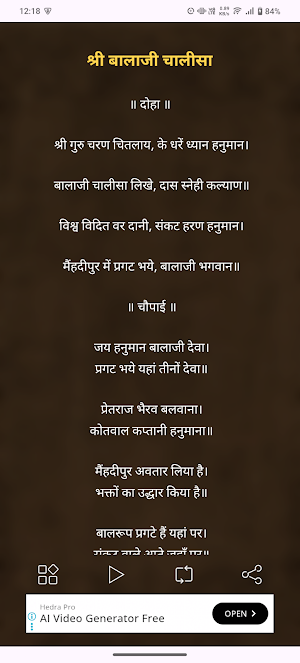 12:18
84%
श्री बालाजी चालीसा
॥ दोहा ॥
श्री गुरु चरण चितलाय, के धरें ध्यान हनुमान।
बालाजी चालीसा लिखे, दास स्नेही कल्याण॥
विश्व विदित वर दानी, संकट हरण हनुमान।
मैंहदीपुर में प्रगट भये, बालाजी भगवान॥
॥ चौपाई ॥
जय हनुमान बालाजी देवा।
प्रगट भये यहां तीनों देवा॥
प्रेतराज भैरव बलवाना।
कोतवाल कप्तानी हनुमाना॥
मैंहदीपुर अवतार लिया है।
भक्तों का उद्धार किया है॥
बालरूप प्रगटे हैं यहां पर।
Hedra Pro
AI Video Generator Free
OPEN